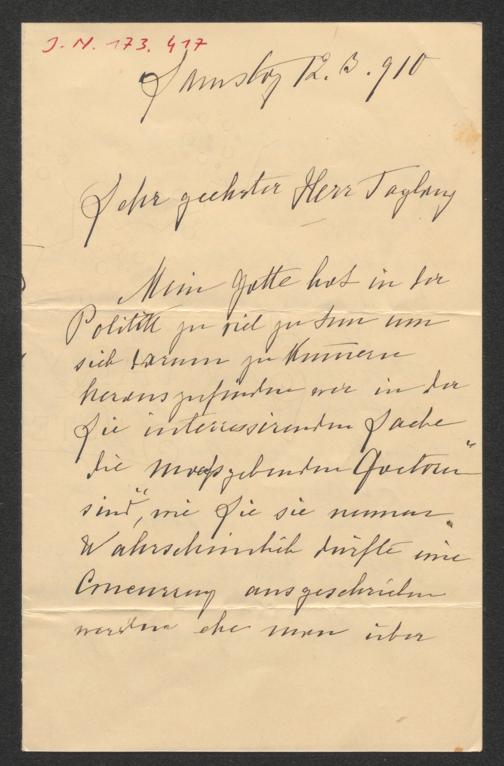 J. N. 173.417
Samstag 12.3.910
Sehr geehrter Herr Taglang
Mein Gatte hat in der
Politik zu viel zu tun um
sich darum zu kümern
herauszufinden wer in der
Sie interessirenden Sache
die maßgebenden Factoren"
sind", wie Sie sie nennen.
Wahrscheinlich dürfte eine
Concurrenz ausgeschrieben
werden ehe man über